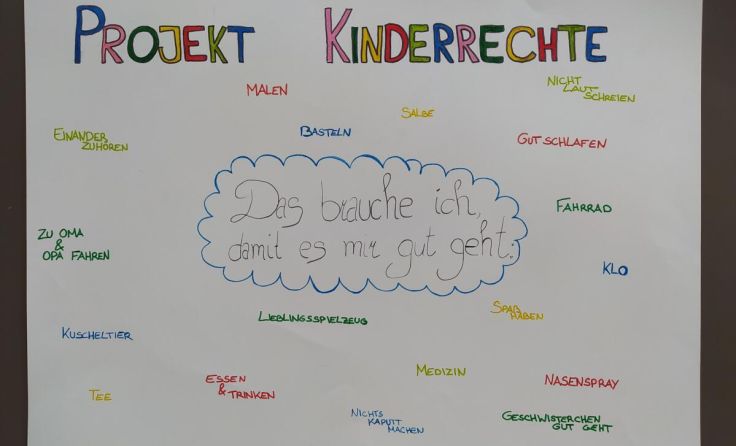 PROJEKT KINDERRECHTE
MALEN
NICHT
LAUT
SCHREIEN
SALBE
BASTELN
EINANDER
ZUHÖREN
GUT SCHLAFEN
Das brauche ich,
damit es mir gut geht:
FAHRRAD
ZU OMA
&
OPA FAHREN
KLO
SPAß
HABEN
LIEBLINGSSPIELZEUG
KUSCHELTIER
MEDIZIN
ESSEN
& TRINKEN
NASENSPRAY
TEE
NICHTS
KAPUTT
MACHEN
GESCHWISTERCHEN
GUT GEHT